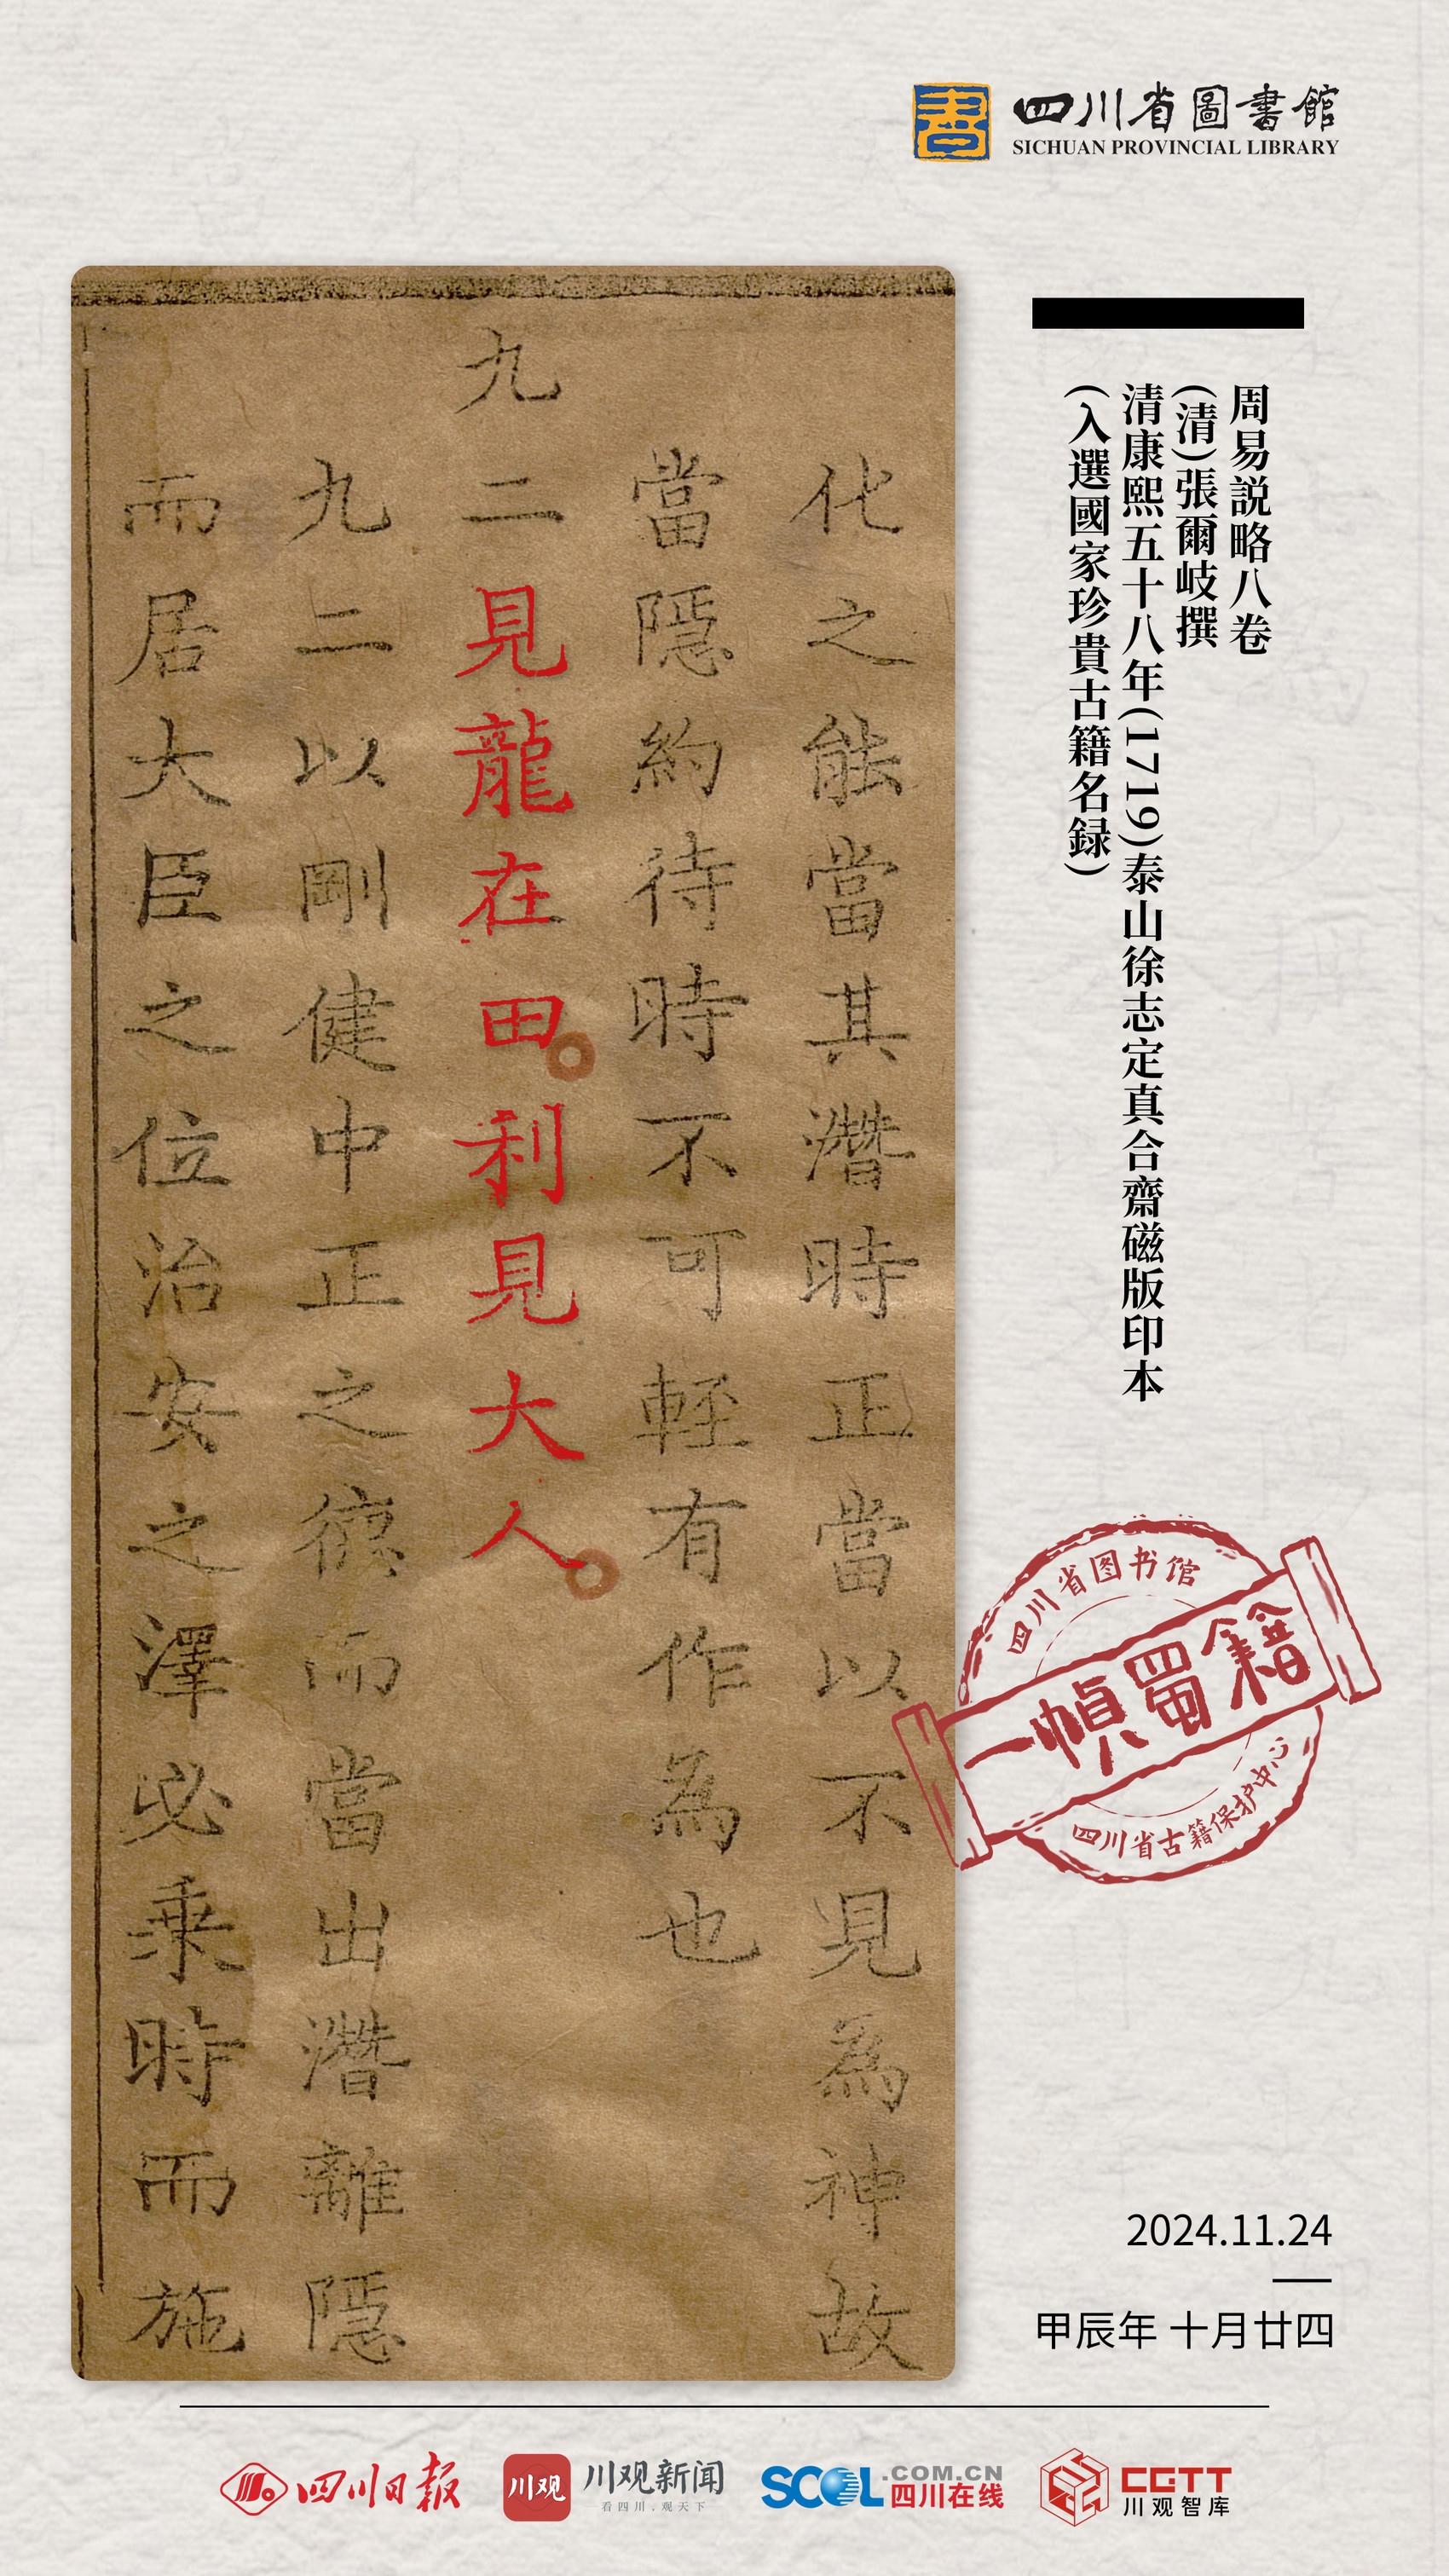 四川省圖書館
SICHUAN PROVINCIAL LIBRARY
周易説略八卷
(清)張爾岐撰
清康熙五十八年(1719)泰山徐志定真合齋磁版印本
(入選國家珍貴古籍名録)
化之能當其潛時正當以不見為神故
當隱約待時不可輕有作為也
九二見龍在田。利見大人。
九二以剛健中正之德而當出潛離隱
而居大臣之位治安之澤必乘時而施
四川省图书馆
一幀蜀籍
四川省古籍保护中心
2024.11.24
甲辰年 十月廿四
四川日报
川观
川观新闻
看四川,观天下
SCOL.COM.CN
四川在线
CGTT
川观智库